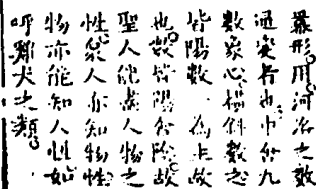 形用河洛之数
通变者也中合九
数象心極斜数之
皆陽数為上故
也数皆陽合陰故
聖人能盡人物之
性衆人亦知物性
物亦能知人性如
呼犬之類